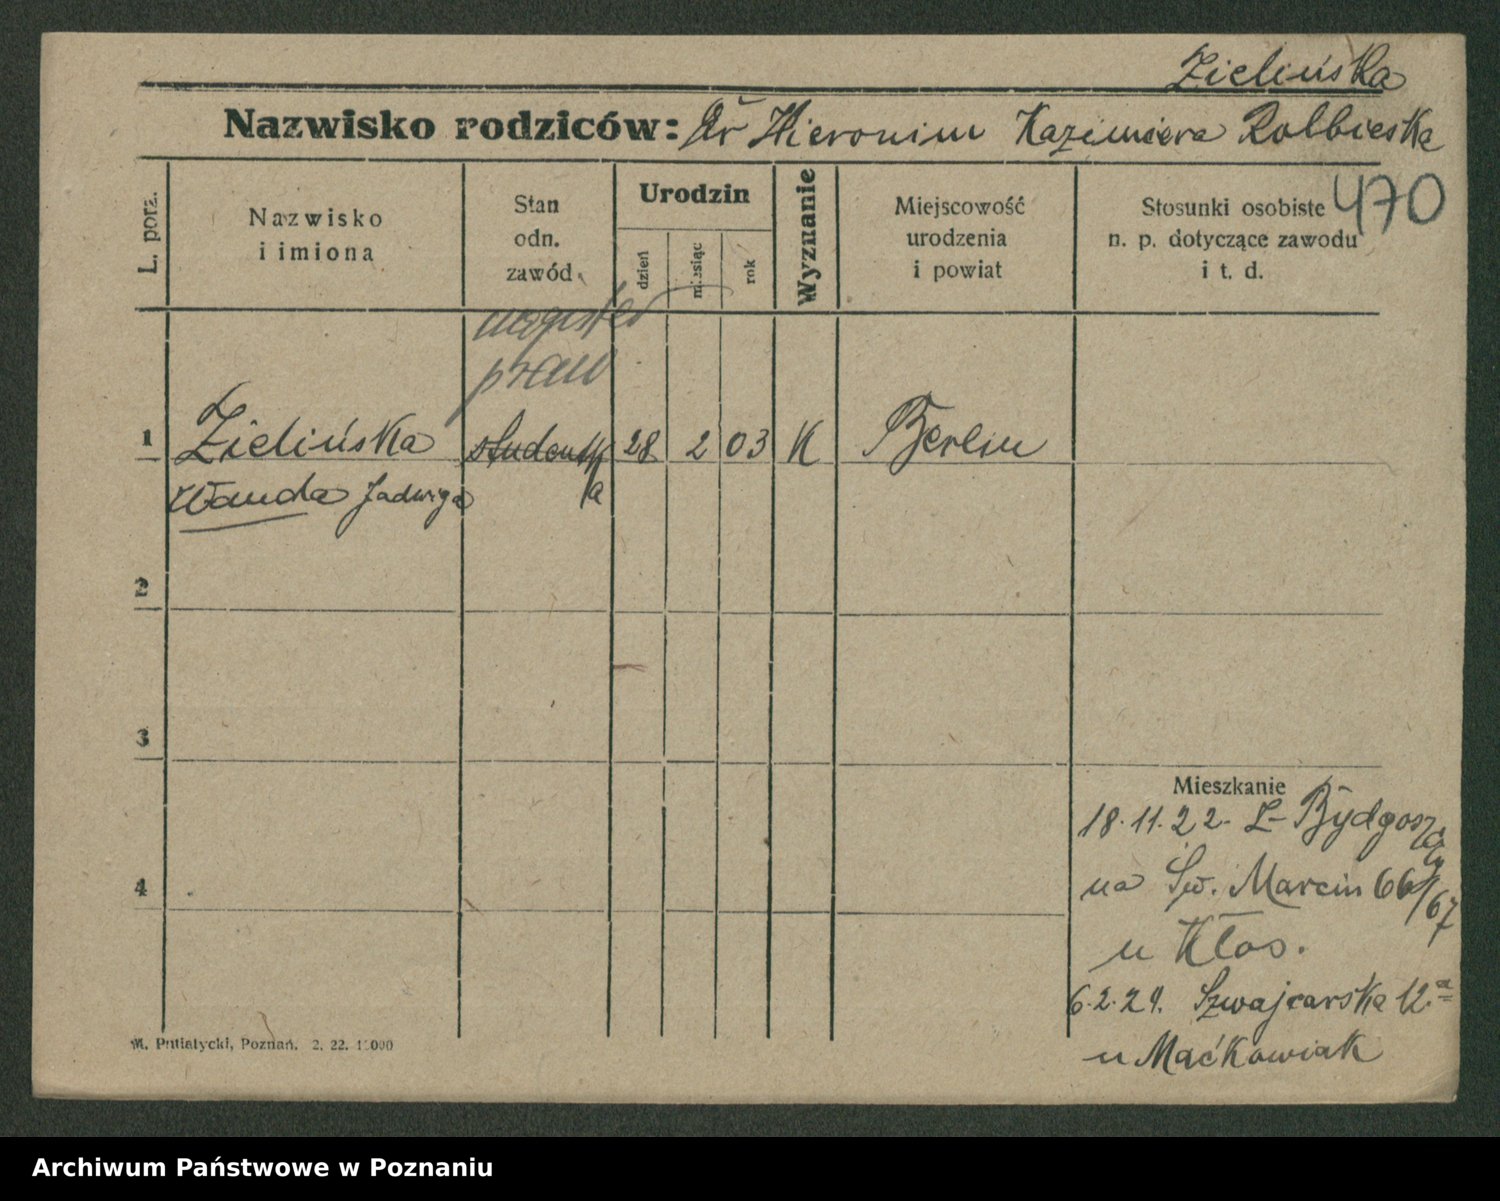 Zielińska
Nazwisko rodziców: Dr Hieronim Kazimiera Rolbieska
470
L. porz.
Nazwisko
i imiona
Stan
odn.
zawód
Urodzin
dzień
miesiąc
rok
Wyznanie
Miejscowość
urodzenia
i powiat
Stosunki osobiste
n. p. dotyczące zawodu
i t. d.
magister
praw
1 Zielińska studentk 28 2 03 K Berlin
a
Wanda Jadwiga
2
3
Mieszkanie
18.11.22. z Bydgoszczy
4
na Św. Marcin 66/67
u Kłos.
6.2.24. Szwajcarska 12a
u Maćkowiak
M. Putiatycki, Poznań. 2. 22. 1000
Archiwum Państwowe w Poznaniu